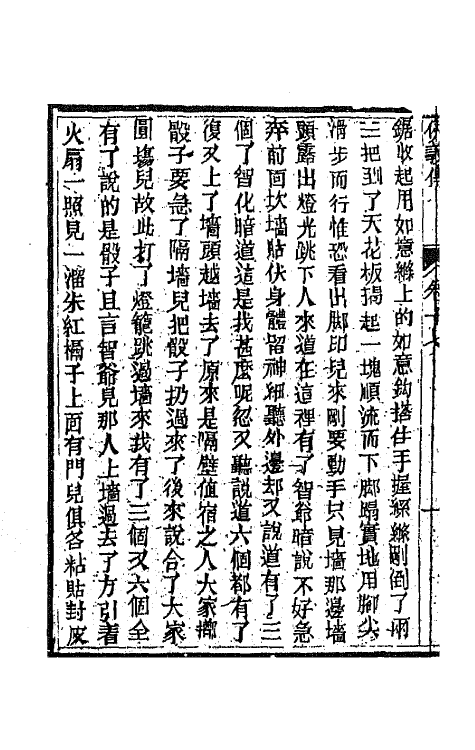 鋸收起用如意縧上的如意鉤搭住手握縧縧剛倒了兩
三把到了天花板揭起一塊順流而下脚踏實地用脚尖
滑步而行惟恐看出脚印兒來剛要動手只見墻那邊墻
頭露出燈光跳下人來道在這裡有了智爺暗說不好急
奔前面坎墻貼伏身體留神細聽外邊却又說道有了三
個了智化暗道這是找甚麼呢忽又聽說道六個都有了
復又上了墻頭越墻去了原來是隔壁值宿之人大家擲
骰子要急了隔墻兒把骰子扔過來了後來說合了大家
圓塲兒故此打了燈籠跳過墻來找有了三個又六個全
有了說的是骰子且言智爺見那人上墻過去了方引着
火扇一照見一溜朱紅槅子上面有門兒俱各粘貼封皮